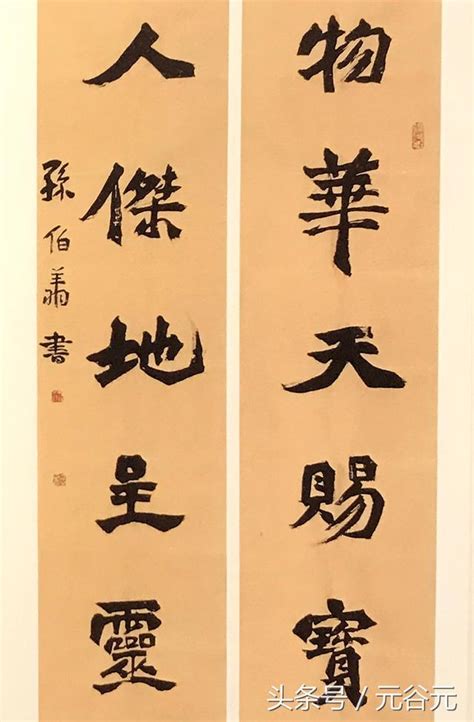 物華天賜寶
人傑地呈靈
孫伯翔書
头条号 / 元谷元